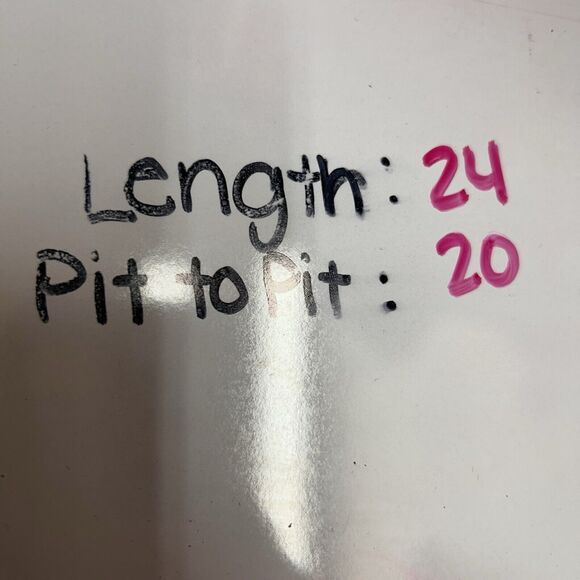 Length: 24
Pit to Pit: 20